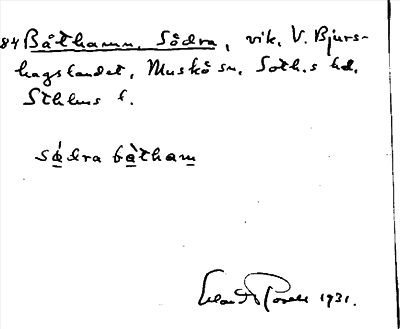 84 Båthamn, Södra, vik, V. Bjurs-
hagslandet, Muskö sn, Soth.s hd,
Sthlms l.
södra båtham
1931.